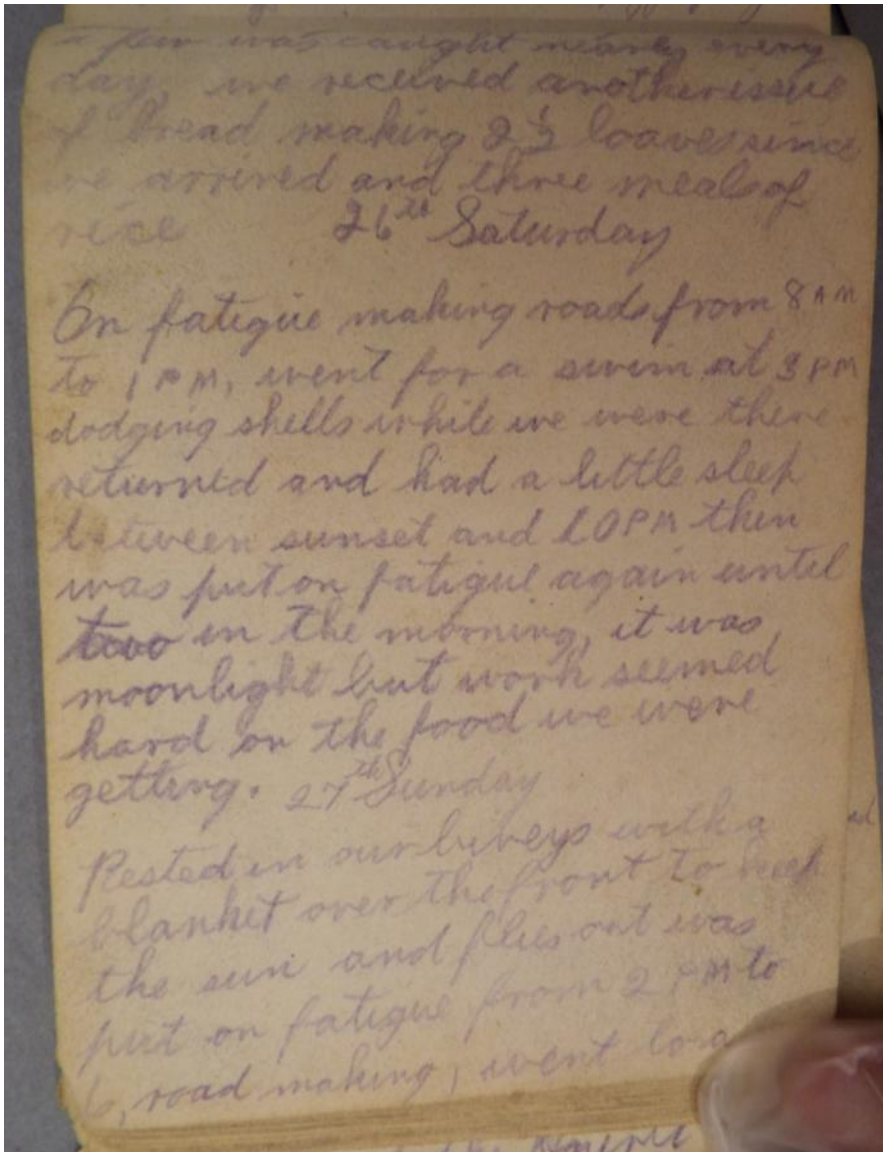 a few was caught nearly every
day, we received another issue
of bread making 2½ loaves since
we arrived and three meals of
rice 26th Saturday
On fatigue making roads from 8 AM
to 1 PM, went for a swim at 3 PM
dodging shells while we were there
returned and had a little sleep
between sunset and 10 PM then
was put on fatigue again until
two in the morning, it was
moonlight but work seemed
hard on the food we were
getting. 27th Sunday
Rested in our biveys with a
blanket over the front to keep
the sun and flies out was
put on fatigue from 2 PM to
6, road making, went to a